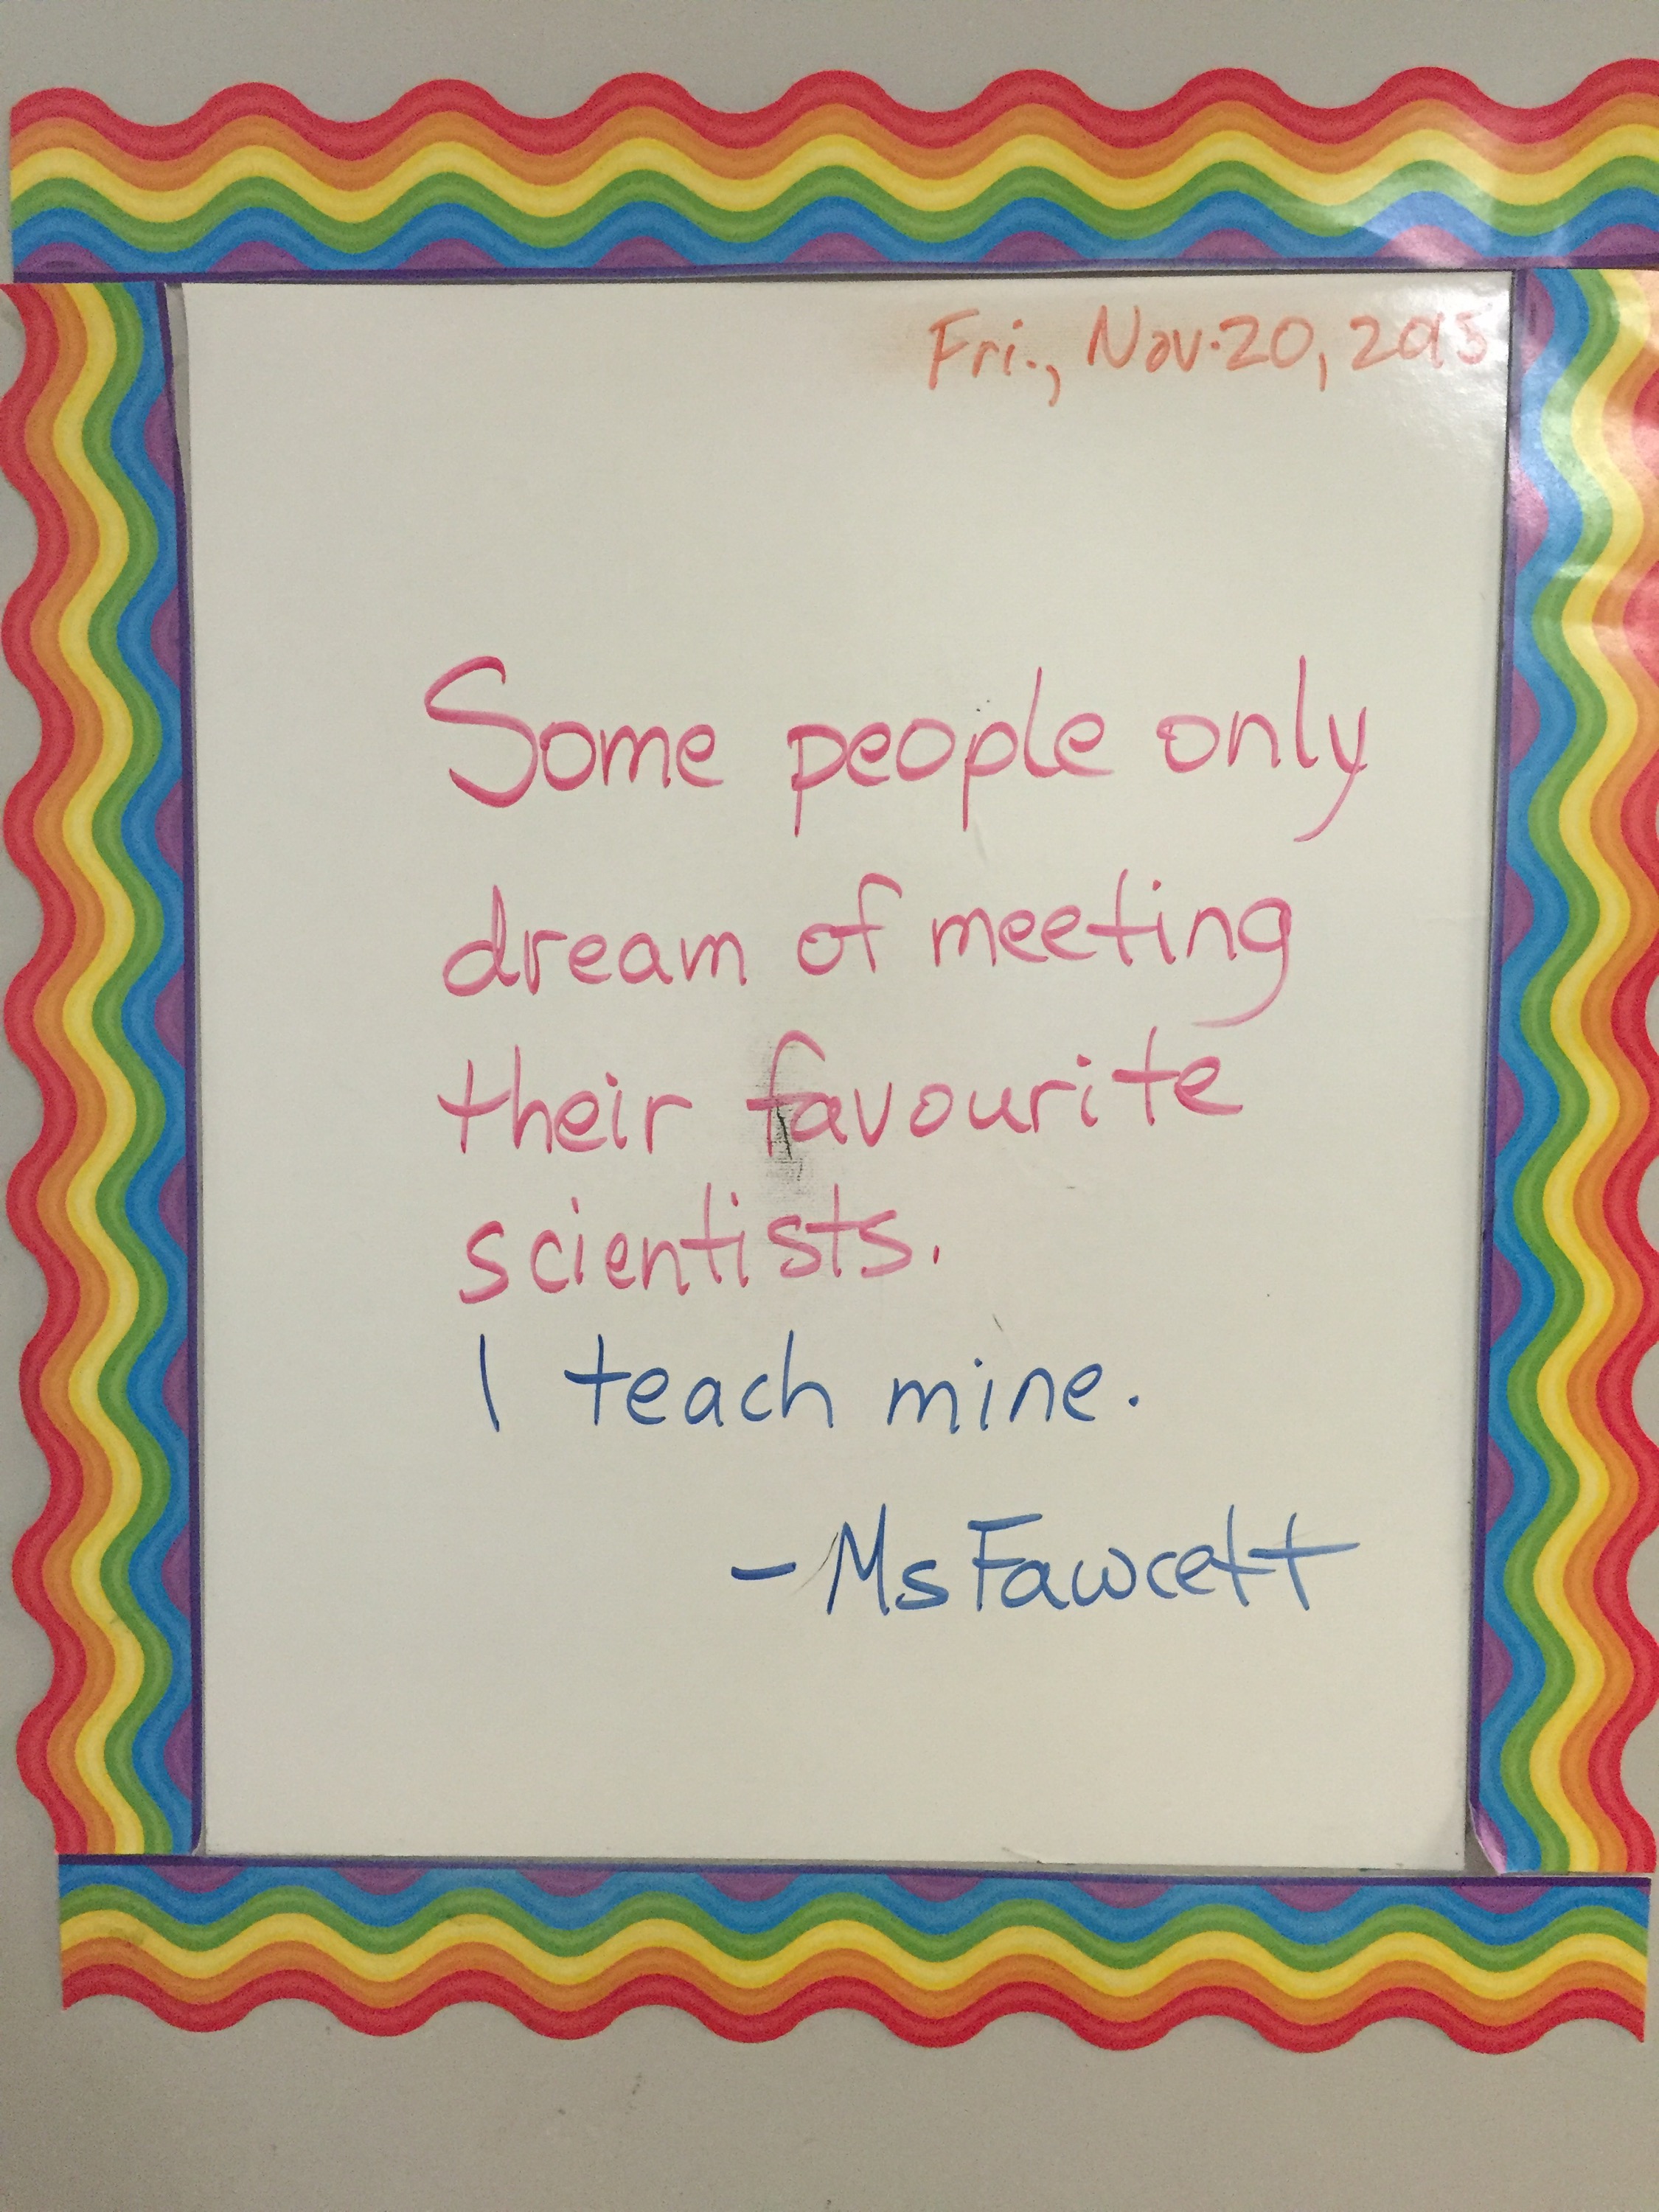 Fri., Nov. 20, 2015
Some people only
dream of meeting
their favourite
scientists.
I teach mine.
- Ms Fawcett